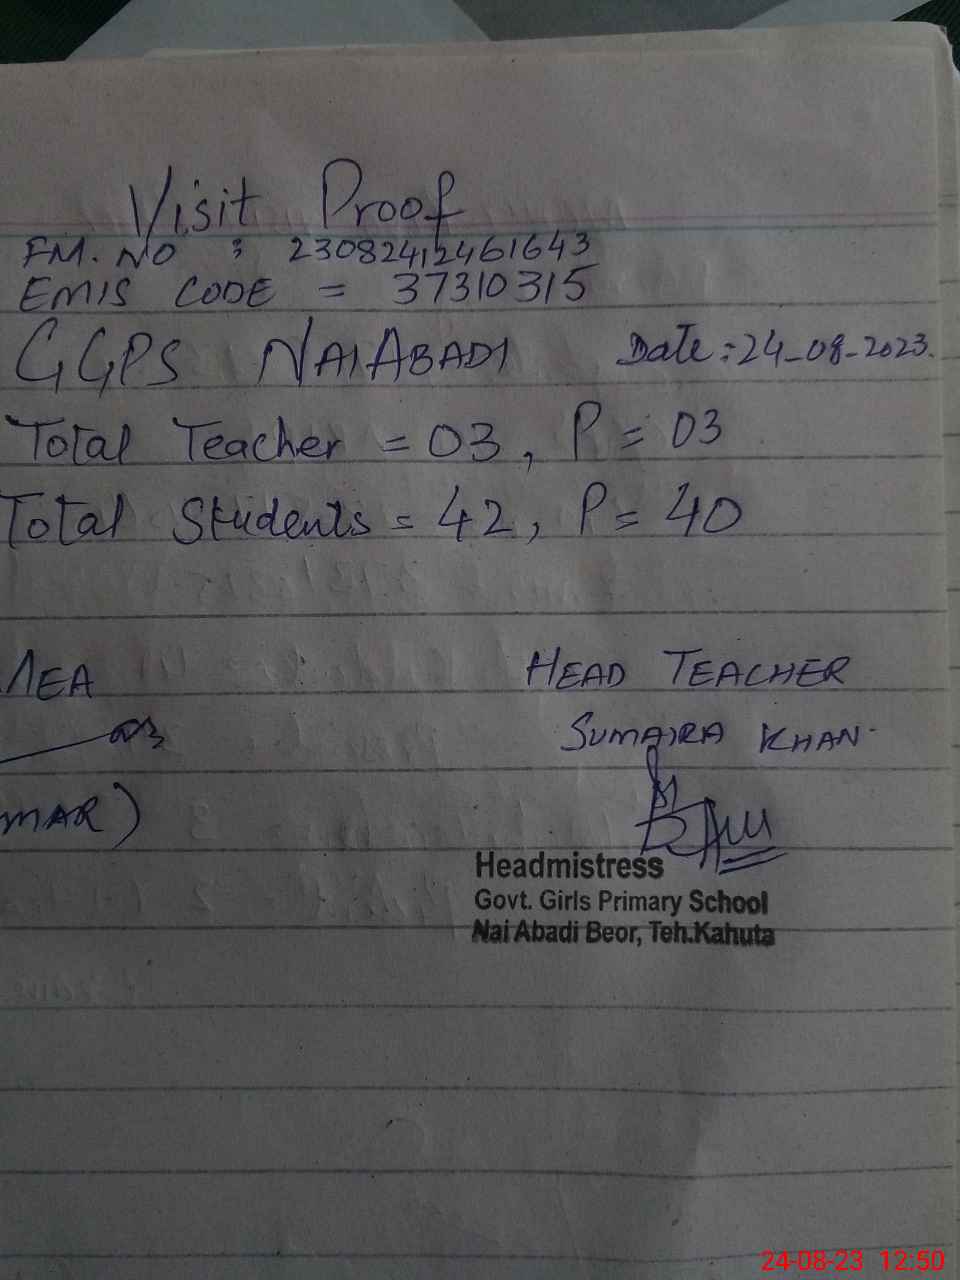 Visit Proof
FM. NO : 23082412461643
EMIS CODE = 37310315
GGPS NAIABADI Date:24-08-2023.
Total Teacher = 03, P = 03
Total Students = 42, P = 40
MEA HEAD TEACHER
SUMAIRA KHAN.
MAR)
Headmistress
Govt. Girls Primary School
Nai Abadi Beor, Teh.Kahuta
24-08-23 12:50